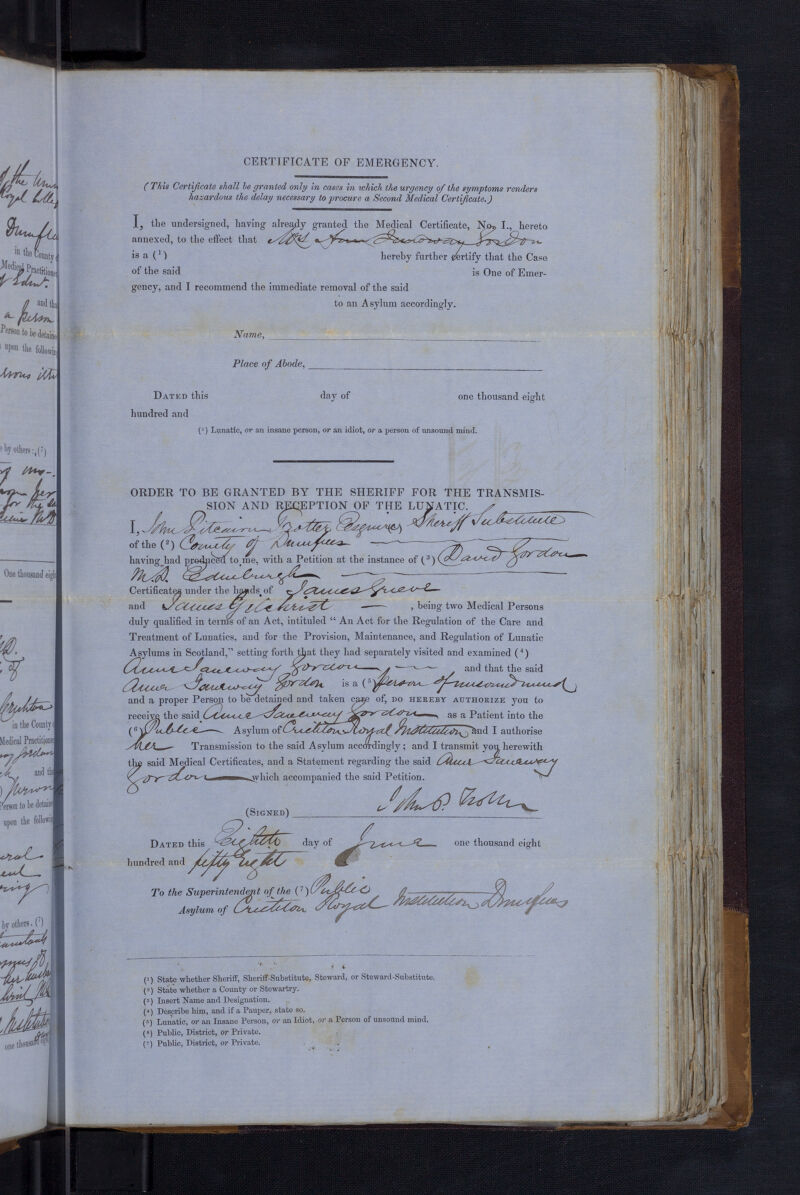 CERTIFICATE OF EMERGENCY.
(This Certificate shall be granted only in cases in which the urgency of the symptoms renders
hazardous the delay necessary to procure a Second Medical Certificate.)
I, the undersigned, having already granted the Medical Certificate, No. I., hereto
annexed, to the effect that Mrs Ann Gordon
is a (¹) hereby further certify that the Case
of the said is One of Emer-
gency, and I recommend the immediate removal of the said
to an Asylum accordingly.
Name,
Place of Abode,
DATED this day of one thousand eight
hundred and
(¹) Lunatic, or an insane person, or an idiot, or a person of unsound mind.
ORDER TO BE GRANTED BY THE SHERIFF FOR THE TRANSMIS-
SION AND RECEPTION OF THE LUNATIC.
I, John Pitcairn Trotter Esquire, Sheriff Substitute
of the (²) County of Dumfries
having had produced to me, with a Petition at the instance of (³) David Gordon
M.D. Edinburgh
Certificates under the hands of James Grieve
and James Gilchrist , being two Medical Persons
duly qualified in terms of an Act, intituled “ An Act for the Regulation of the Care and
Treatment of Lunatics, and for the Provision, Maintenance, and Regulation of Lunatic
Asylums in Scotland,” setting forth that they had separately visited and examined (⁴)
Gordon and that the said
Gordon is a (⁵) person of unsound mind
and a proper Person to be detained and taken care of, DO HEREBY AUTHORIZE you to
receive the said Gordon as a Patient into the
(⁶) Public Asylum of Crichton Royal Institution and I authorise
her Transmission to the said Asylum accordingly ; and I transmit you herewith
the said Medical Certificates, and a Statement regarding the said
Gordon which accompanied the said Petition.
(SIGNED) John P. Trotter
DATED this Eighth day of June one thousand eight
hundred and fifty Eight
To the Superintendent of the (⁷) Public
Asylum of Crichton Royal Institution Dumfries
(¹) State whether Sheriff, Sheriff-Substitute, Steward, or Steward-Substitute.
(²) State whether a County or Stewartry.
(³) Insert Name and Designation.
(⁴) Describe him, and if a Pauper, state so.
(⁵) Lunatic, or an Insane Person, or an Idiot, or a Person of unsound mind.
(⁶) Public, District, or Private.
(⁷) Public, District, or Private.